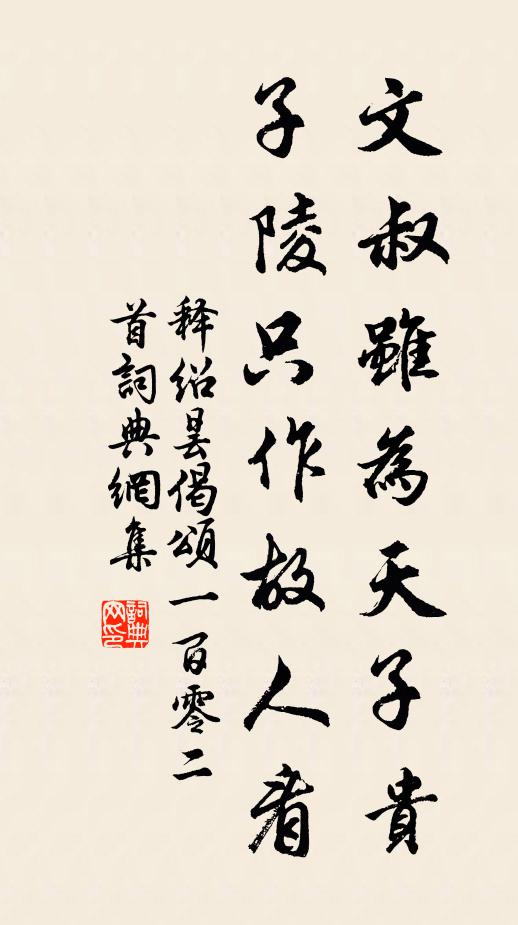 文叔雖為天子貴
子陵只作故人看
释绍曇偈頌一百零二
首詞典網集
詞典
网印